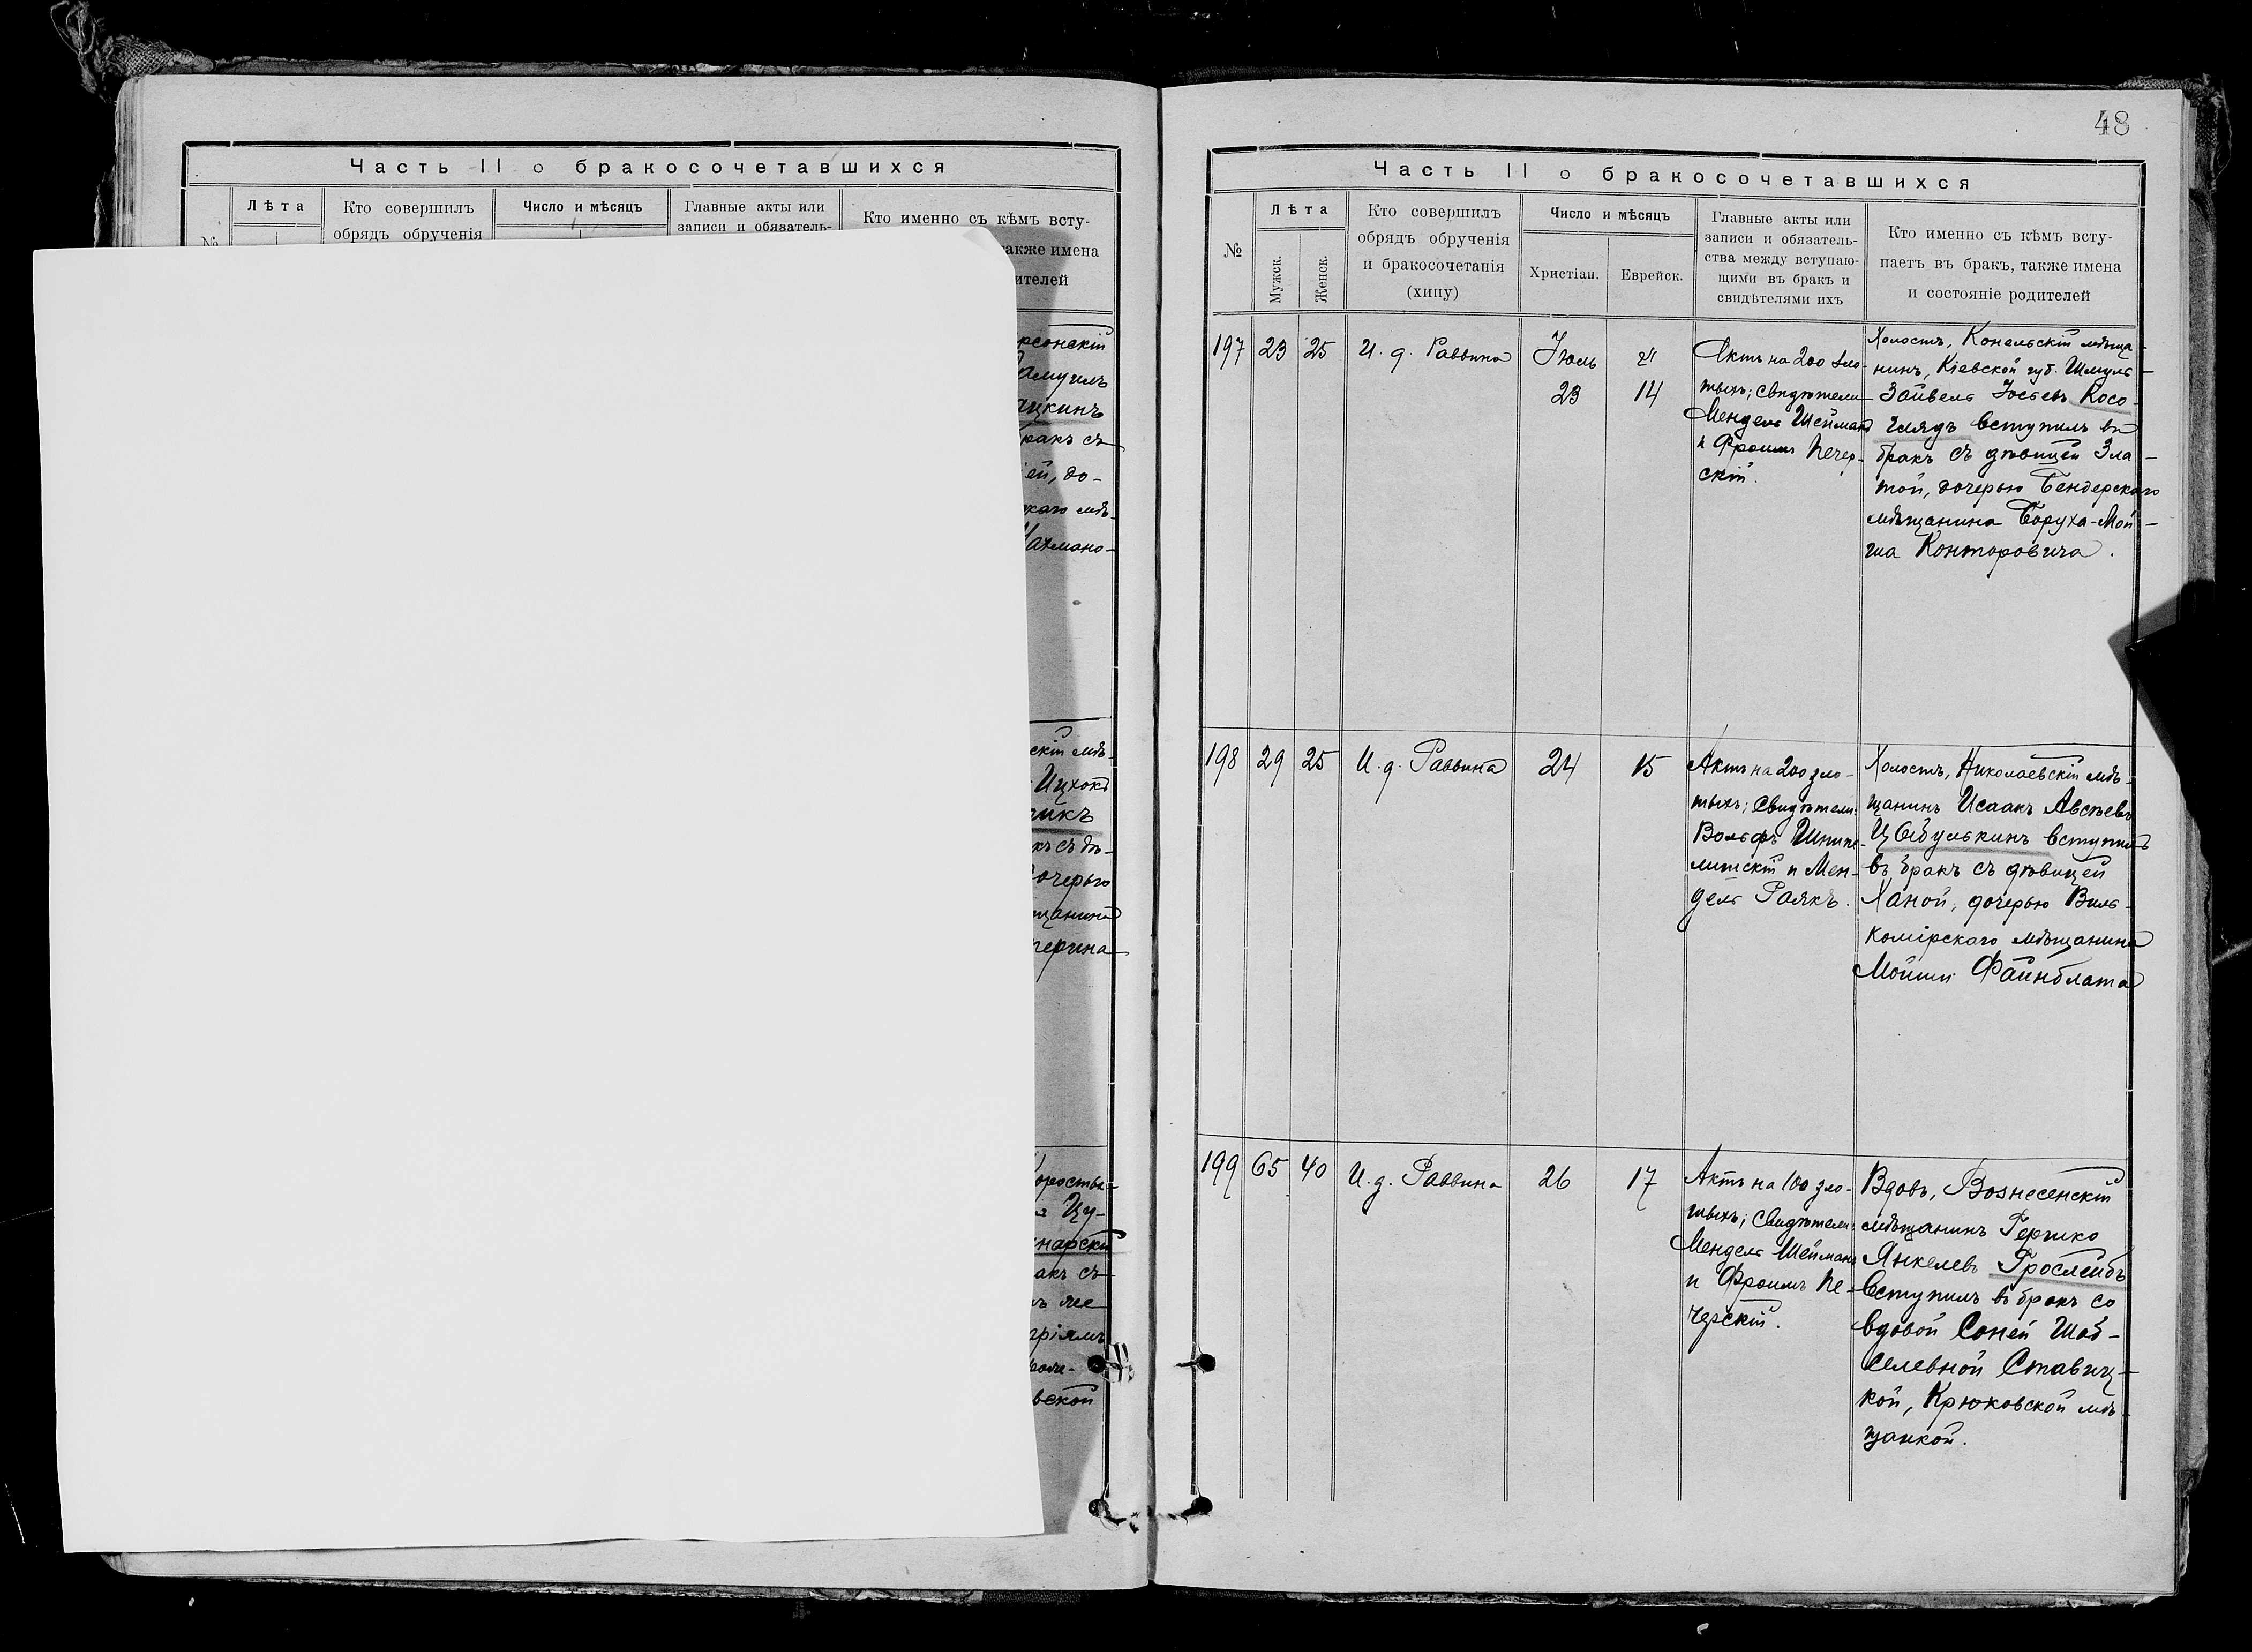 Часть II о бракосочетавшихся
Лѣта
Кто совершилъ
обрядъ обрученія
Число и мѣсяцъ
Главные акты или
записи и обязатель-
Кто именно съ кѣмъ всту-
также имена
ителей
№
рсонскій
амуилъ
ацкинъ
бракъ съ
ей, до-
скаго мѣ-
Нахмано-
скій мѣ-
Ицхокъ
никъ
къ съ дѣ-
дочерью
щанина
перина
Коросты-
Цу-
нарскій
акъ съ
вской
48
Часть II о бракосочетавшихся
№
Лѣта
Мужск.
Женск.
Кто совершилъ
обрядъ обрученія
и бракосочетанія
(хипу)
Число и мѣсяцъ
Христіан.
Еврейск.
Главные акты или
записи и обязатель-
ства между вступаю-
щими въ бракъ и
свидѣтелями ихъ
Кто именно съ кѣмъ всту-
паетъ въ бракъ, также имена
и состояніе родителей
197 23 25 И. д. Раввина
Іюль
23 14
Актъ на 200 зло-
тыхъ; Свидѣтели
Мендель Шейманъ
и Фроимъ Печер-
скій.
Холостъ, Конельскій мѣща-
нинъ, Кіевской губ. Шмуль-
Зайвелъ Іосевъ Косо-
глядъ вступилъ въ
бракъ съ дѣвицей Зла-
той, дочерью Бендерскаго
мѣщанина Боруха-Мой-
ша Конторовича.
198 29 25 И. д. Раввина 24 15
Актъ на 200 зло-
тыхъ; Свидѣтели:
Вольфъ
и Мен-
дель Раякъ.
Холостъ, Николаевскій мѣ-
щанинъ Исаакъ Авсѣевъ
Цыбулькинъ вступилъ
въ бракъ съ дѣвицей
Ханой, дочерью Виль-
комірскаго мѣщанина
Мойши Файнблата
199 65 40 И. д. Раввина 26 17
Актъ на 100 зло-
тыхъ; Свидѣтели:
Мендель Шейманъ
и Фроимъ Пе-
черскій.
Вдовъ, Вознесенскій
мѣщанинъ Гершко
Янкелевъ Грослейбъ
вступилъ въ бракъ со
вдовой Соней Шаб-
селевной Ставиц-
кой, Крюковской мѣ-
щанкой.